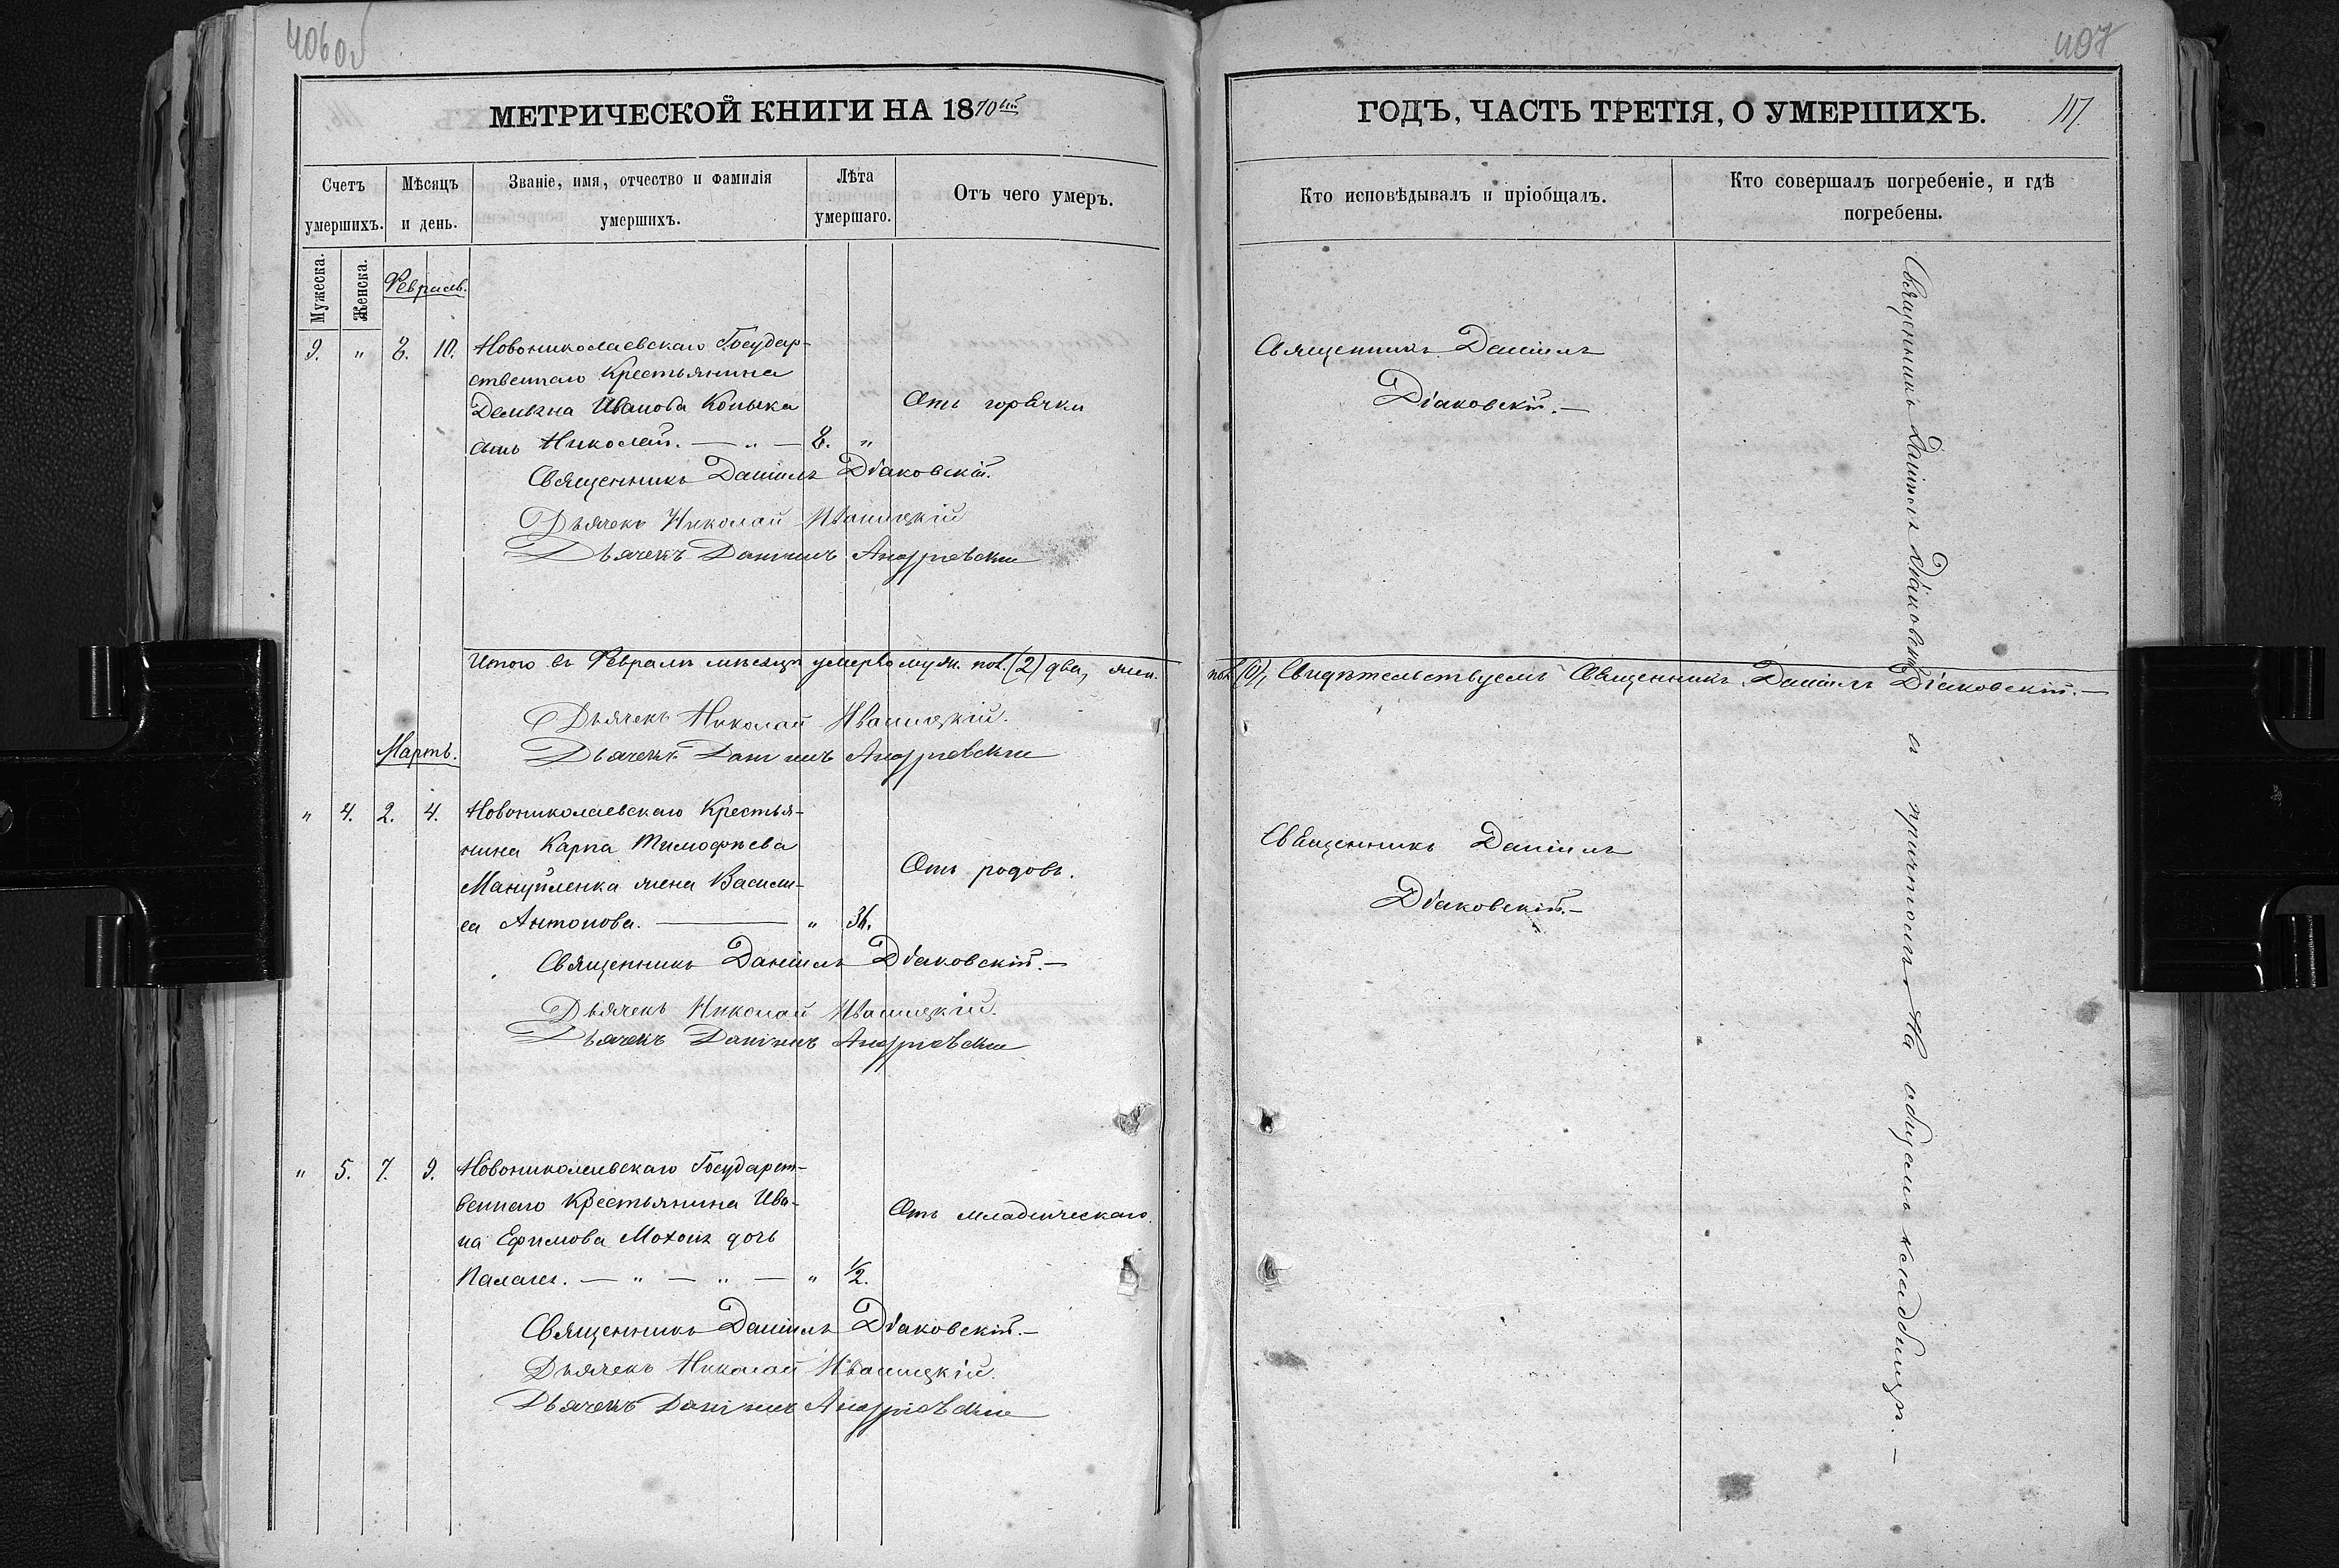 406об
МЕТРИЧЕСКОЙ КНИГИ НА 1870ый
Счетъ умершихъ.
Мѣсяцъ и день.
Званіе, имя, отчество и фамилія умершихъ.
Лѣта умершаго.
Отъ чего умеръ.
Мужеска.
Женска.
Февраль.
9. " 8. 10. Новониколаевскаго Государ-
ственнаго Крестьянина
Демьяна Иванова Копыка
Отъ горячки
сынъ Николай. — " — 8. "
Священникъ Даніилъ Діаковскій.
Дьячекъ Николай Иваницкій
Дьячекъ Даніилъ Андріевскій
Итого въ Февралѣ мѣсяцѣ умерло муж. пол. (2) два, жен.
Дьячекъ Николай Иваницкій.
Мартъ.
Дьячекъ Даніилъ Андріевскій
" 4. 2. 4. Новониколаевскаго Крестья-
нина Карпа Тимофѣева
Мануйленка жена Васили-
Отъ родовъ.
са Антонова. — " 36.
Священникъ Даніилъ Діаковскій.—
Дьячекъ Николай Иваницкій.
Дьячекъ Даніилъ Андріевскій
" 5. 7. 9. Новониколаевскаго Государст-
веннаго Крестьянина Ива-
Отъ младенческаго.
на Ефимова Мохоня дочь
Палагея. — " — " — " 1/2.
Священникъ Даніилъ Діаковскій.—
Дьячекъ Николай Иваницкій.
Дьячекъ Даніилъ Андріевскій
407
ГОДЪ, ЧАСТЬ ТРЕТІЯ, О УМЕРШИХЪ.
117.
Кто исповѣдывалъ и пріобщалъ.
Кто совершалъ погребеніе, и гдѣ погребены.
Священникъ Даніилъ
Діаковскій.—
пол. (0), Свидѣтельствуемъ Священникъ Даніилъ Діаковскій.—
Священникъ Даніилъ
Діаковскій.—
Священникъ Даніилъ Діаковскій съ причтомъ на общемъ кладбищѣ.—